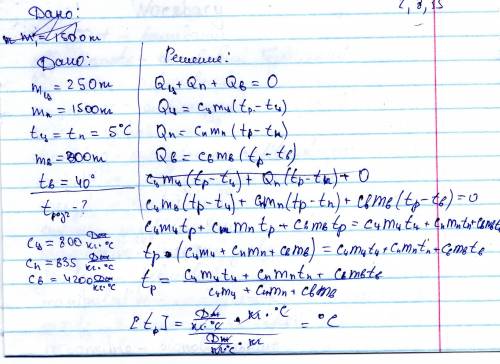 Дано:
m₁ = 1500т
Дано:
m_ц = 250т
m_п = 1500т
t_ц = t_п = 5°C
m_в = 800т
t_в = 40°
t_р - ?
c_ц = 800 Дж/кг·°C
c_п = 835 Дж/кг·°C
c_в = 4200 Дж/кг·°C
Решение:
Q_ц + Q_п + Q_в = 0
Q_ц = c_ц m_ц (t_р - t_ц)
Q_п = c_п m_п (t_р - t_п)
Q_в = c_в m_в (t_р - t_в)
c_ц m_ц (t_р - t_ц) + Q_п (t_р - t_п) + 0
c_ц m_ц (t_р - t_ц) + c_п m_п (t_р - t_п) + c_в m_в (t_р - t_в) = 0
c_ц m_ц t_р + c_п m_п t_р + c_в m_в t_р = c_ц m_ц t_ц + c_п m_п t_п + c_в m_в t_в
t_р · (c_ц m_ц + c_п m_п + c_в m_в) = c_ц m_ц t_ц + c_п m_п t_п + c_в m_в t_в
t_р = c_ц m_ц t_ц + c_п m_п t_п + c_в m_в t_в / c_ц m_ц + c_п m_п + c_в m_в
[t_р] = Дж/кг·°C · кг · °C / Дж/кг·°C · кг = °C